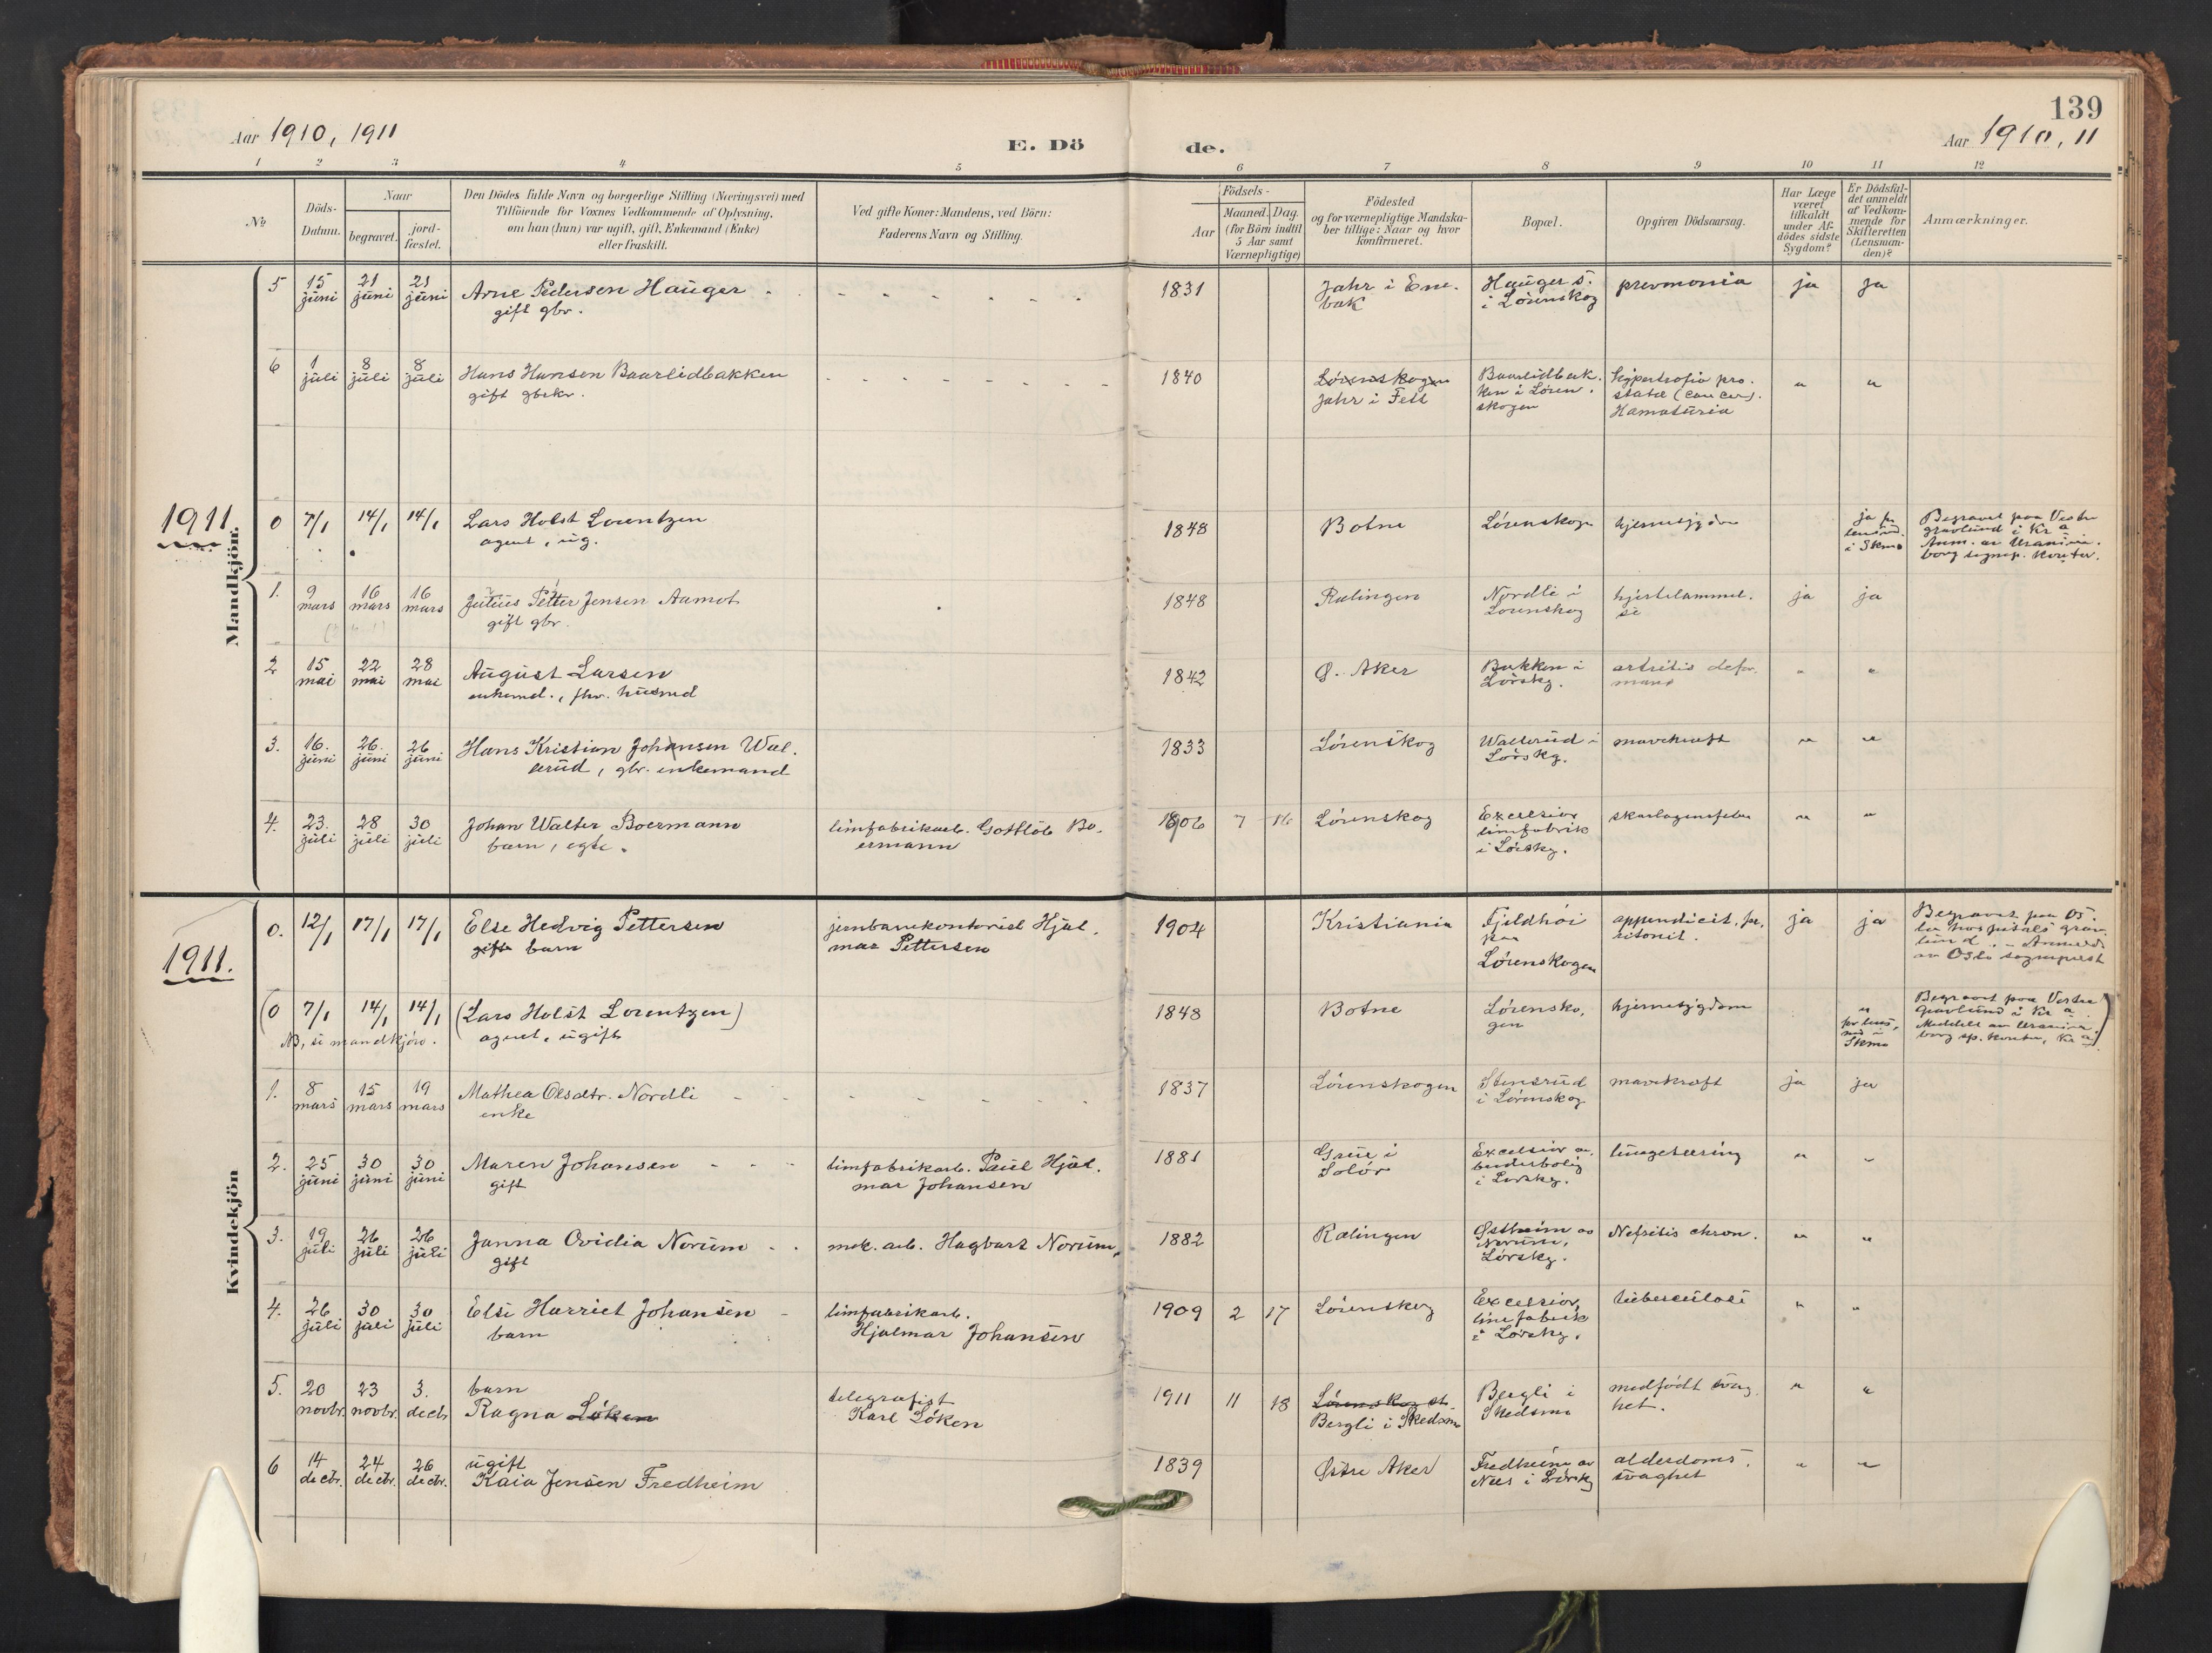 139
Aar 1910, 1911
E. Dö
de.
Aar 1910, 11
1 2 3 4 5 6 7 8 9 10 11 12
No
Döds-
Datum.
Naar
begravet.
jord-
fæstet.
Den Dödes fulde Navn og borgerlige Stilling (Næringsvei) med
Tilföiende for Voxnes Vedkommende af Oplysning,
om han (hun) var ugift, gift, Enkemand (Enke)
eller fraskilt.
Ved gifte Koner: Mandens, ved Börn:
Faderens Navn og Stilling.
Födsels-
Aar
Maaned. Dag.
(for Börn indtil
5 Aar samt
Værnepligtige)
Födested
og for værnepligtige Mandska-
ber tillige: Naar og hvor
konfirmeret.
Bopæl.
Opgiven Dödsaarsag.
Har Læge
været
tilkaldt
under Af-
dödes sidste
Sygdom?
Er Dödsfal-
det anmeldt
af Vedkom-
mende for
Skifteretten
(Lensman-
den)?
Anmærkninger.
Mandkjön.
5 15 juni 21 juni 21 juni Arne Pedersen Hauger
gift gbr.
1831 Jahr i Ene-
bak
Hauger s.
i Lørenskog
prevmonia ja ja
6 1 juli 8 juli 8 juli Hans Hansen Baarlidbakken
gift gbrkr.
1840 Lørenskogen
Jahr i Fett
Baarlidbak-
ken i Løren-
skogen
hypertrofia pro-
stata (cancer).
Hamaturia
" "
1911.
0 7/1 14/1 14/1 Lars Holst Lorentzen
agent, ug.
1848 Botne Lørenskogn hjernesygdom
ja for
lensmd.
i Skmo
Begravet paa Vestre
gravlund i Kra
Anm. av Uranien-
borg sognep. kontor.
1. 9 mars 16 mars 16 mars Julius Petter Jensen Aamot
gift gbr.
1848 Rælingen Nordli i
Lørenskog
hjertelammel-
se
ja ja
2 15 mai 22 mai 28 mai August Larsen
enkemd., fhv. husmd
1842 Ø. Aker Bakken i
Lørskg.
artritis defor-
mans
" "
3. 16. juni 26. juni 26 juni Hans Kristian Johansen Wal-
lerud, gbr. enkemand
1833 Lørenskog Wallerud i
Lørskg.
mavekræft " "
4. 23. juli 28 juli 30 juli Johan Walter Boermann
barn, egte.
limfabrikarb. Gottlob Bo-
ermann
1906 7 16 Lørenskog Excelsior
limfabrik
i Lørskg.
skarlagensfeber " "
Kvindekjön
1911.
0. 12/1 17/1 17/1 Else Hedvig Pettersen
gift barn
jernbanekontorist Hjal-
mar Pettersen
1904 Kristiania Fjeldhøi
paa
Lørenskogen
appendicit, pe-
ritonit.
ja ja
Begravet paa Os-
lo hospitals grav-
lund. - Anmeldt
av Oslo sogneprest
(0 7/1 14/1 14/1 (Lars Holst Lorentzen)
NB, se mandkjøn. agent, ugift
1848 Botne Lørensko-
gen
hjernesygdom
"
for lens-
md i
Skmo
Begravet paa Vestre
Gravlund i Kra.
Meddelt av Uranien-
borg sp. kontor, Kra)
1. 8 mars 15 mars 19 mars Mathea Olsdtr. Nordli
enke
1837 Lørenskogen Stensrud
i Lørenskog
mavekræft ja ja
2. 25 juni 30 juni 30 juni Maren Johansen
gift
limfabrikarb. Paul Hjal-
mar Johansen
1881 Grue i
Solør
Excelsior ar-
beiderbolig
i Lørskg.
lungetæring " "
3. 19 juli 26 juli 26 juli Janna Ovidia Norum
gift
mek. arb. Hagbart Norum
1882 Rælingen Østheim av
Norum,
Lørskg.
Nefritis chron. " "
4. 26 juli 30 juli 30 juli Else Harriet Johansen
barn
limfabrikarb.
Hjalmar Johansen
1909 2 17 Lørenskog Excelsior,
limfabrik
i Lørskg.
tuberculose " "
5. 20 novbr. 23 novbr. 3. decbr. barn
Ragna Løken
telegrafist
Karl Løken
1911 11 18 Lørenskog st.
Bergli i Skedsmo
Bergli i
Skedsmo
medfødt svag-
het.
" "
6 14 decbr. 24 decbr. 26 decbr. ugift
Kaia Jensen Fredheim
1839 Østre Aker Fredheim av
Nes i Lørskg
alderdoms-
svaghet
" "